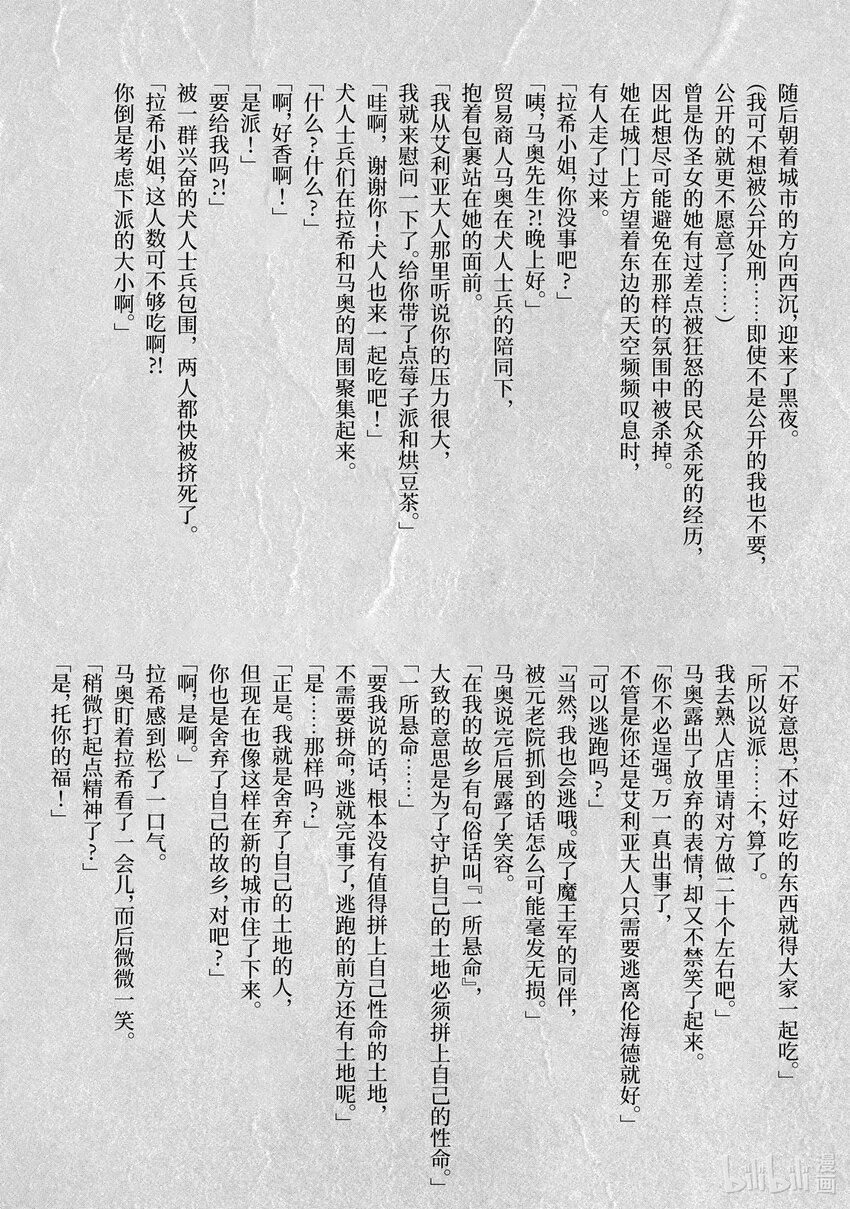 随后朝着城市的方向西沉，迎来了黑夜。
（我可不想被公开处刑……即使不是公开的我也不要，
公开的就更不愿意了……）
曾是伪圣女的她有过差点被狂怒的民众杀死的经历，
因此想尽可能避免在那样的氛围中被杀掉。
她在城门上方望着东边的天空频频叹息时，
有人走了过来。
「拉希小姐，你没事吧？」
「咦，马奥先生？！晚上好。」
贸易商人马奥在犬人士兵的陪同下，
抱着包裹站在她的面前。
「我从艾利亚大人那里听说你的压力很大，
我就来慰问一下了。给你带了点莓子派和烘豆茶。」
「哇啊，谢谢你！犬人也来一起吃吧！」
犬人士兵们在拉希和马奥的周围聚集起来。
「什么？什么？」
「啊，好香啊！」
「是派！」
「要给我吗？！」
被一群兴奋的犬人士兵包围，两人都快被挤死了。
「拉希小姐，这人数可不够吃啊？！
你倒是考虑下派的大小啊。」
「不好意思，不过好吃的东西就得大家一起吃。」
「所以说派……不，算了。
我去熟人店里请对方做二十个左右吧。」
马奥露出了放弃的表情，却又不禁笑了起来。
「你不必逞强。万一真出事了，
不管是你还是艾利亚大人只需要逃离伦海德就好。」
「可以逃跑吗？」
「当然，我也会逃哦。成了魔王军的同伴，
被元老院抓到的话怎么可能毫发无损。」
马奥说完后展露了笑容。
「在我的故乡有句俗话叫『一所悬命』，
大致的意思是为了守护自己的土地必须拼上自己的性命。」
「一所悬命……」
「要我说的话，根本没有值得拼上自己性命的土地，
不需要拼命，逃就完事了，逃跑的前方还有土地呢。」
「是……那样吗？」
「正是。我就是舍弃了自己的土地的人，
但现在也像这样在新的城市住了下来。
你也是舍弃了自己的故乡，对吧？」
「啊，是啊。」
拉希感到松了一口气。
马奥盯着拉希看了一会儿，而后微微一笑。
「稍微打起点精神了？」
「是，托你的福！」
bilibili漫画